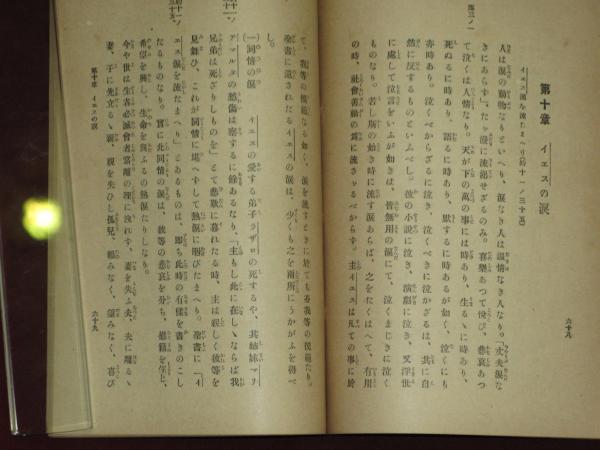 傳三ノ一
第十章　イエスの涙
イエス涙を流たまへり（約十一ノ三十五）
人は涙の動物なりといへり、涙なき人は温情なき人なり。「丈夫涙な
きにあらず」、たゞ漫に流涕せざるのみ。喜樂あつて悅び、悲哀あつ
て泣くは人情なり。天が下の萬の事には時あり、生るゝに時あり、
死ぬるに時あり、語るに時あり、默するに時あるが如く、泣くにも
亦時あり。泣くべからざるに泣き、泣くべきに泣かざるは、共に自
然に反するものといふべし。彼の小說に泣き、演劇に泣き、又浮世
に處して泣言をいふが如きは、皆無用の涙にて、泣くまじきに泣く
ものなり。若し斯の如き時に流す涙あらば、之をたくはへて、有用
の時、社會者働の爲に流さゞるべからず。主イエスは凡ての事に於
六十八
て、我等の模範たる如く、涙を流すときに於ても亦我等の模範たり。
聖書に遺されたるイエスの涙は、少くも之を兩所にうかがふを得べ
し。
（一）同情の涙　イエスの愛する弟子ラザロの死するや、其姉妹マリ
アマルタの愁傷は察するに餘あるなり、「主もし此に在しゝならば我
兄弟は死ざりしものを」とて悲歎に暮れたる時、主は親しく彼等を
見舞ひ、これが同情に堪へずして熱涙に咽びたまへり。聖書に「イ
エス涙を流たまへり」とあるものは、即ち此時の有樣を書きのこし
たるものなり。實に此同情の涙は、彼等の悲哀を分ち、慰藉を與と、
希望を興し、生命を與ふるの熱涙たりしなり。
今や世は生者必滅會者常離の理に洩れず、妻を失ふ夫、夫に離るゝ
妻、子に先立るゝ親、親を失ひし孤兒、賴みなく、望みなく、喜び
第十章　イエスの涙
六十九